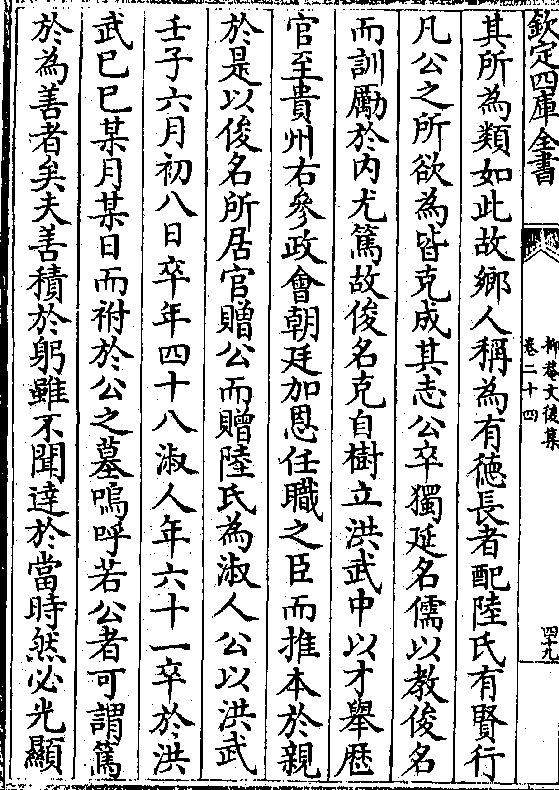 欽定四庫全書
抑菴文後集
卷二十四
四十九
其所為類如此故鄉人稱為有徳長者配陸氏有賢行
凡公之所欲為皆克成其志公卒獨延名儒以教俊名
而訓勵於内尤篤故俊名克自樹立洪武中以才舉歴
官至貴州右參政會朝廷加恩任職之臣而推本於親
於是以俊名所居官贈公而贈陸氏為淑人公以洪武
壬子六月初八日卒年四十八淑人年六十一卒於洪
武已巳某月某日而祔於公之墓嗚呼若公者可謂篤
於為善者矣夫善積於躬雖不聞達於當時然必光顯